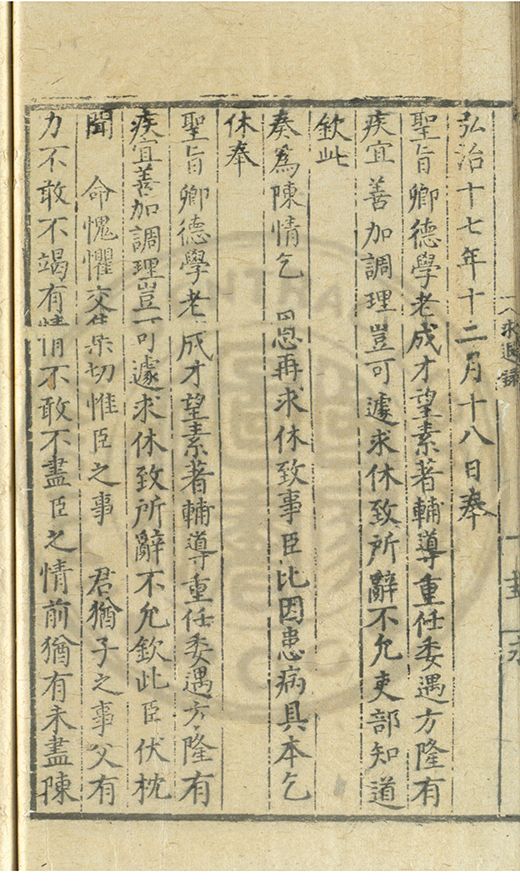 求退錄
弘治十七年十二月十八日奉
聖旨卿德學老成才望素著輔導重任委遇方隆有
疾宜善加調理豈可遽求休致所辭不允吏部知道
欽此
奏為陳情乞 恩再求休致事臣比因患病具本乞
休奉
聖旨卿德學老成才望素著輔導重任委遇方隆有
疾宜善加調理豈可遽求休致所辭不允欽此臣伏枕
聞 命愧懼交集
切惟臣之事 君猶子之事父有
力不敢不竭有情
不敢不盡臣之情前猶有未盡陳